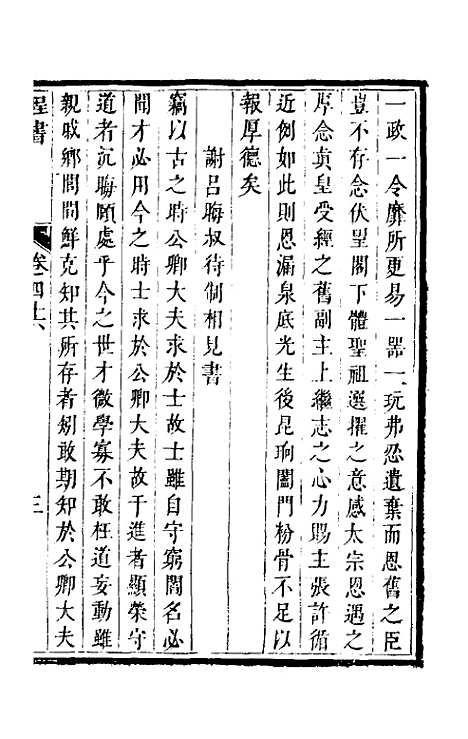 一政一令靡所更易一器一玩弗忍遺棄而恩舊之臣
豈不存念伏望閣下體聖祖選擢之意感太宗恩遇之
厚念真皇受經之舊副主上繼志之心力賜主張許循
近例如此則恩漏泉底光生後昆眴闔門粉骨不足以
報厚德矣
謝呂晦叔待制相見書
竊以古之時公卿大夫求於士故士雖自守窮閻名必
聞才必用今之時士求於公卿大夫故干進者顯榮守
道者沉晦頤處乎今之世才微學寡不敢枉道妄動雖
親戚鄉閭間鮮克知其所存者矧敢期知於公卿大夫
程書
卷四十六
三